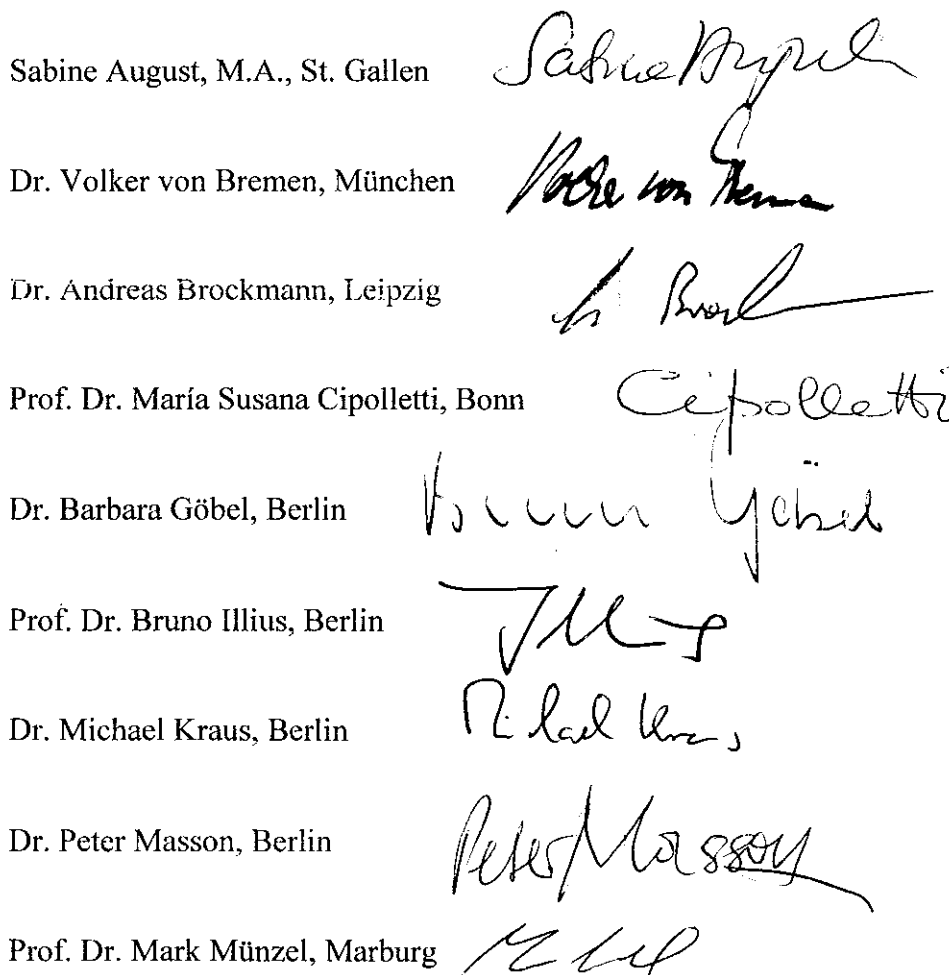 Sabine August, M.A., St. Gallen Sabine August
Dr. Volker von Bremen, München Volker von Bremen
Dr. Andreas Brockmann, Leipzig
Prof. Dr. María Susana Cipolletti, Bonn Cipolletti
Dr. Barbara Göbel, Berlin Göbel
Prof. Dr. Bruno Illius, Berlin
Dr. Michael Kraus, Berlin Michael Kraus
Dr. Peter Masson, Berlin Peter Masson
Prof. Dr. Mark Münzel, Marburg